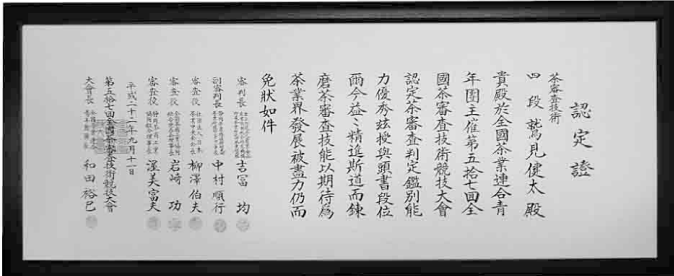 認定證
茶審査技術
四段 鷲見健太殿
貴殿於全國茶業連合青
年團主催第五拾七回全
國茶審査技術競技大會
認定茶審査判定鑑別能
力優秀茲授與頭書段位
而今益々精進斯道而錬
磨茶審査技能以期待為
茶業界發展被盡力仍而
免狀如件
審判長 吉冨 均
副審判長 中村順行
審査役 柳澤伯夫
審査役 岩崎 功
審査役 渥美富夫
平成二十二年九月十一日
第五拾七回全國茶審査技術競技大會
大會長 和田裕巳